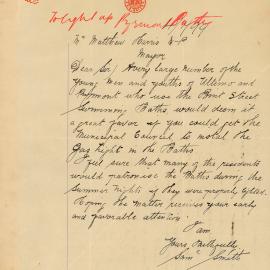 To light up Pyrmont Baths
Mr Matthew Harris M.P
Mayor
Dear Sir/ A very large number of the
young men and youths of Ultimo and
Pyrmont who use the Point Street
Swimming Baths would deem it
a great favor if you could get the
Municipal Council to instal the
Gas Light in the Baths
I feel sure that many of the residents
would patronise the Baths during the
Summer Nights if they were properly
Hoping the matter receives your early
and favorable attention
I am
Yours Faithfully
Saml Smith